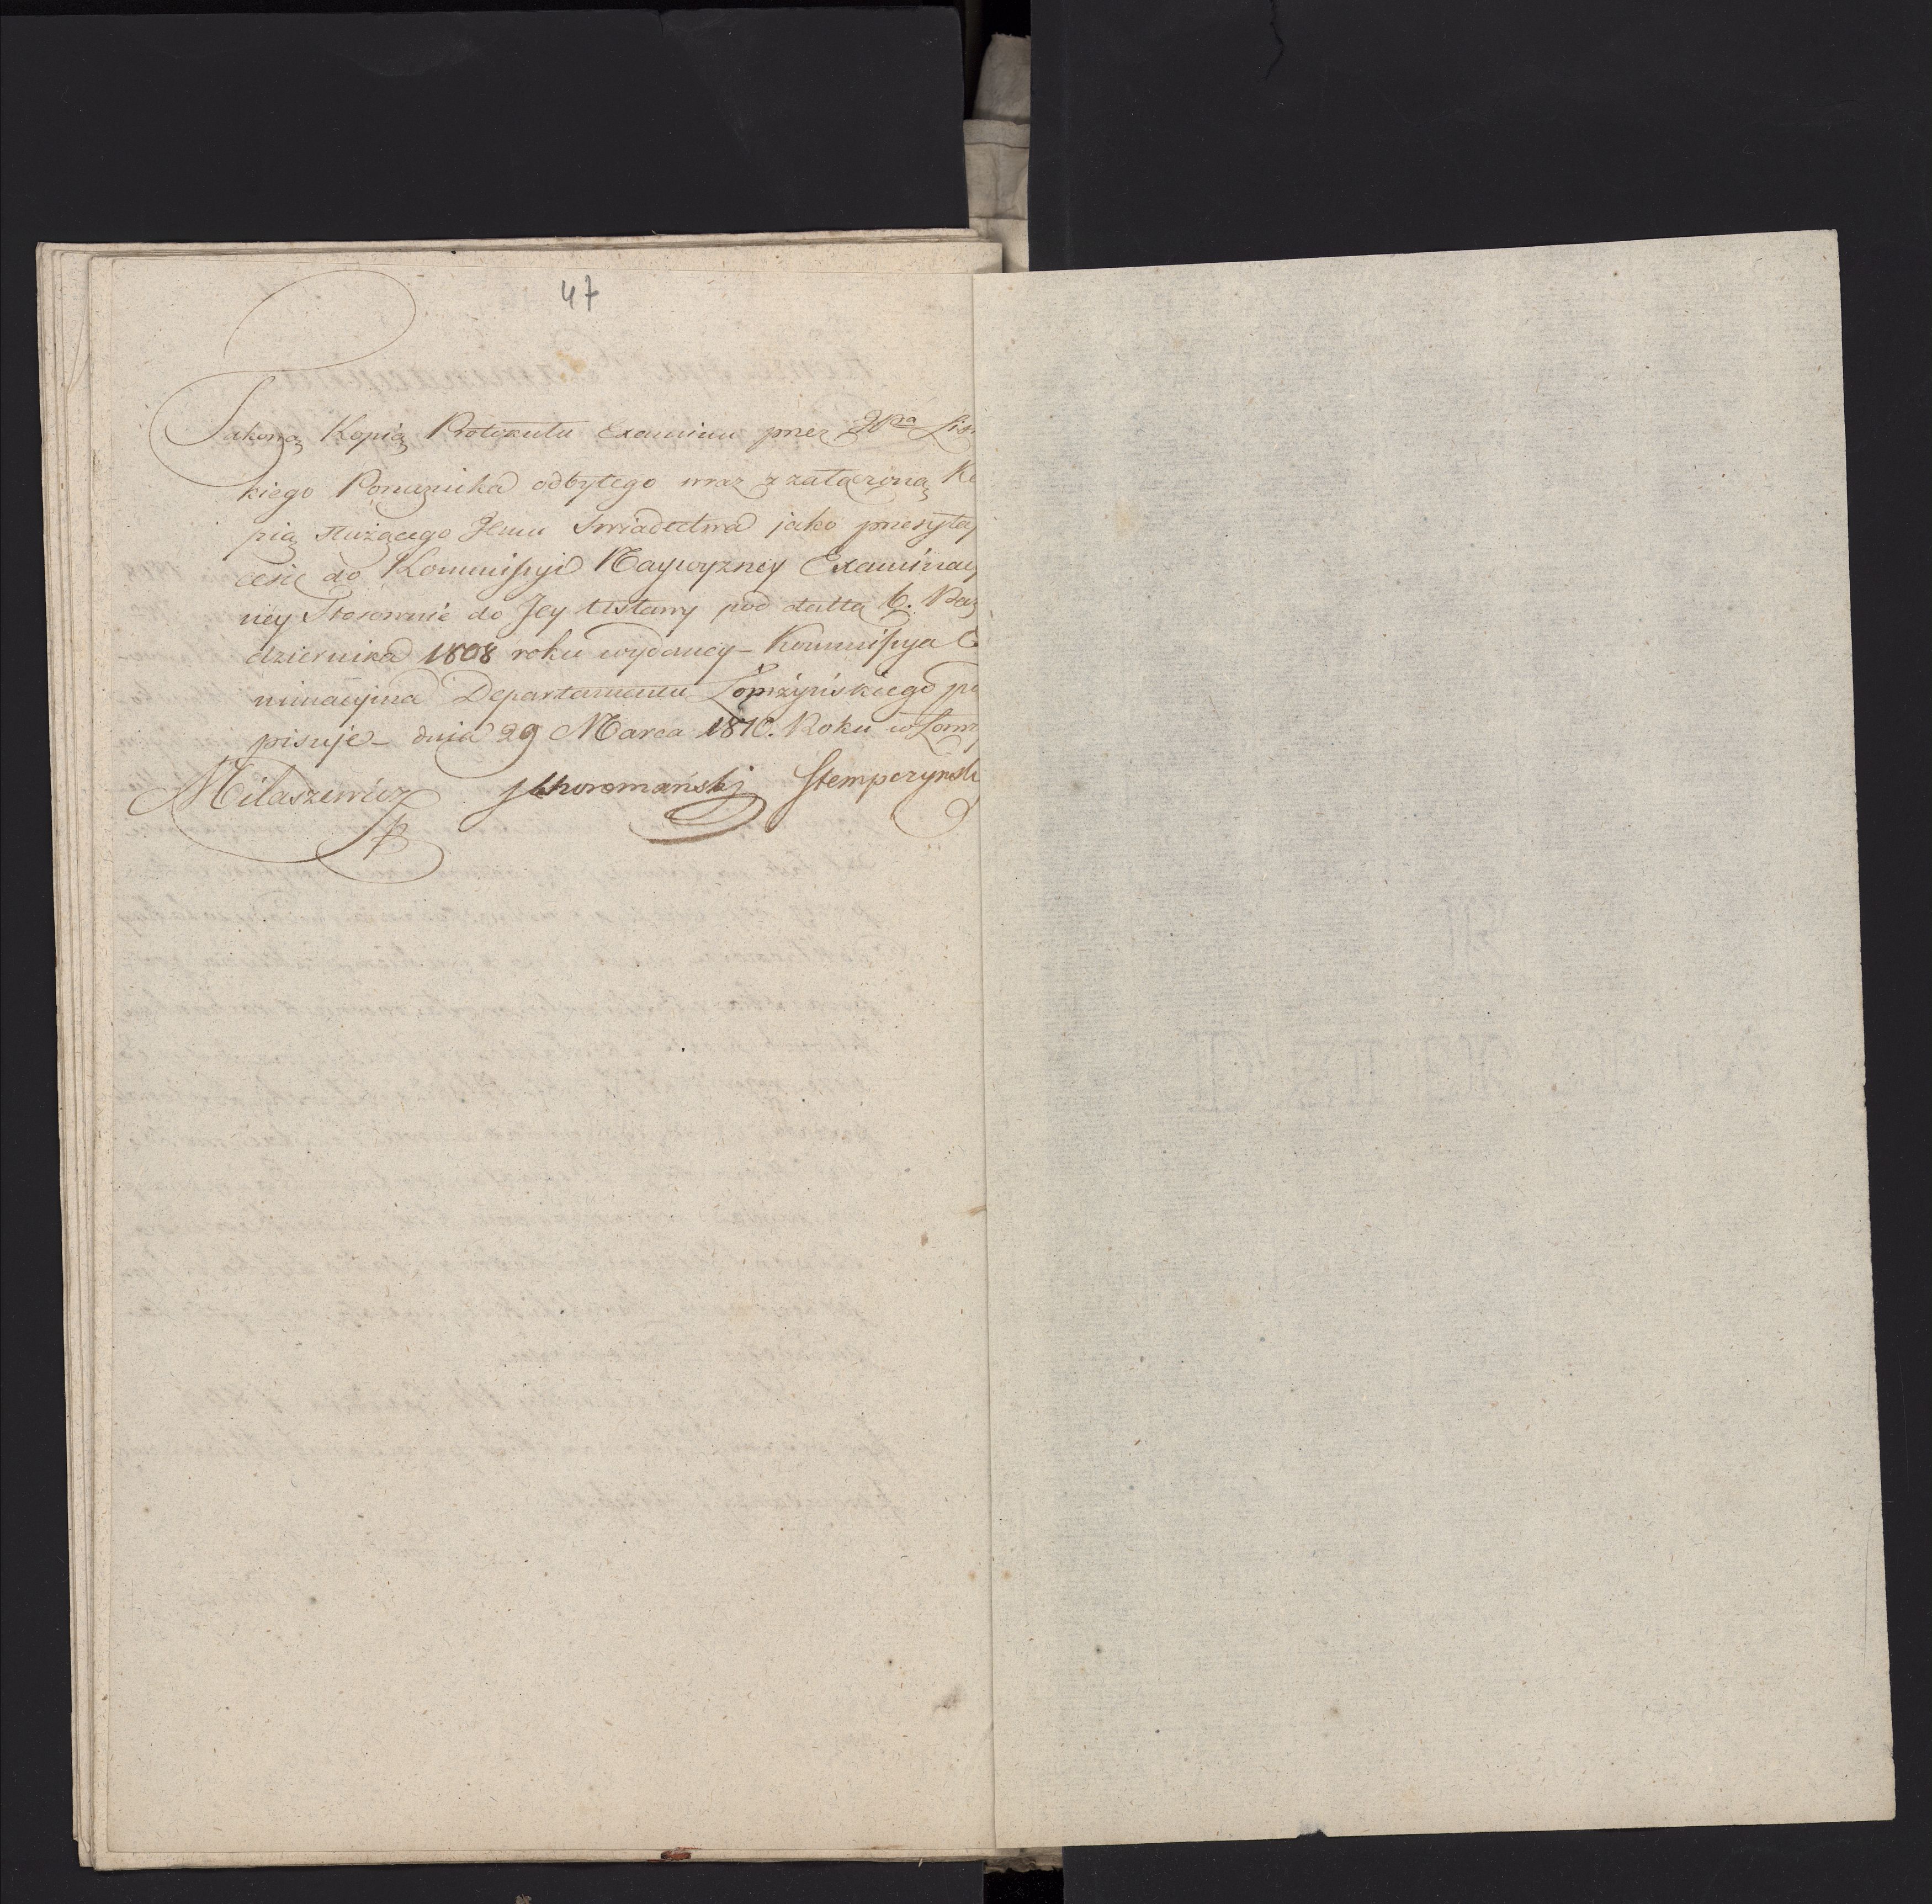 47
Jakową Kopią Protokułu Examinu przez JPna Lis
kiego Pomuznika odbytego wraz z załączoną Ko
pią służącego Jemu Swiadectwa jako przesyła
cesię do Kommissyi Naywyzney Examinacy
ney Stosownie do Jey Ustawy pod dattą 6. Paz
dziernika 1808 roku wydaney - Kommissya E
minacyina Departamentu Łomżyńskiego po
pisuje - dnia 29 Marca 1810. Roku w Łomz
Milaszewicz Choromański Stempczyński